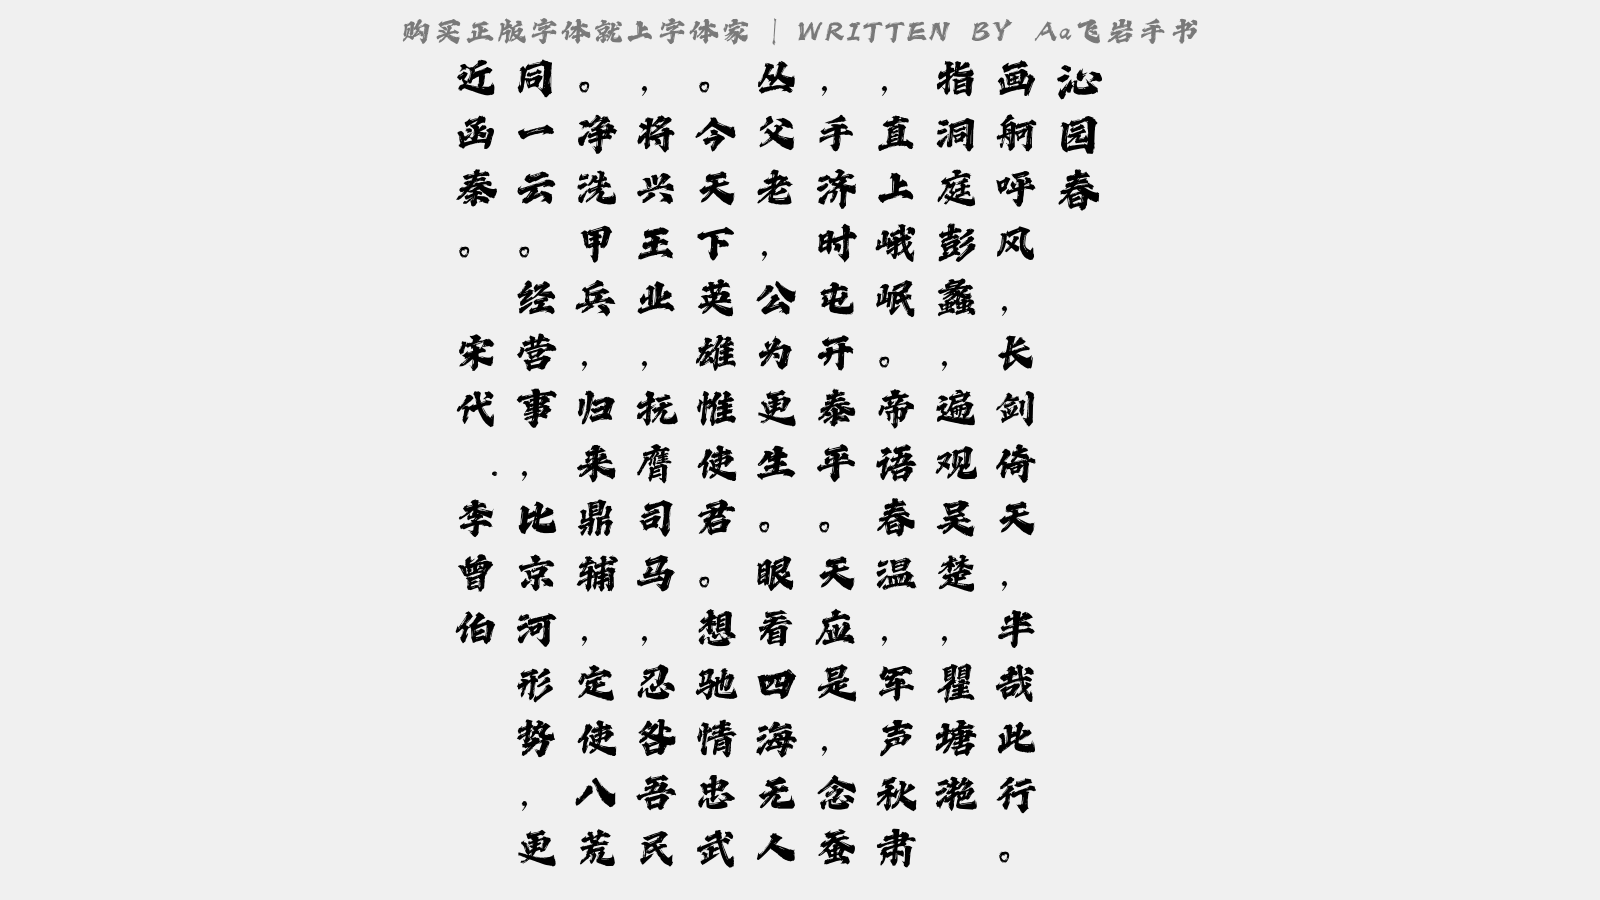 购买正版字体就上字体家 | WRITTEN BY Aa飞岩手书
沁园春
画舸呼风，长剑倚天，半哉此行。
指洞庭彭蠡，遍观吴楚，瞿塘滟
，直上峨岷。帝语春温，军声秋肃
，手济时屯开泰平。天应是，念蚕
丛父老，公为更生。眼看四海无人
。今天下英雄惟使君。想驰情忠武
，将兴王业，抚膺司马，忍咎吾民
。净洗甲兵，归来鼎辅，定使八荒
同一云。经营事，比京河形势，更
近函秦。 宋代.李曾伯